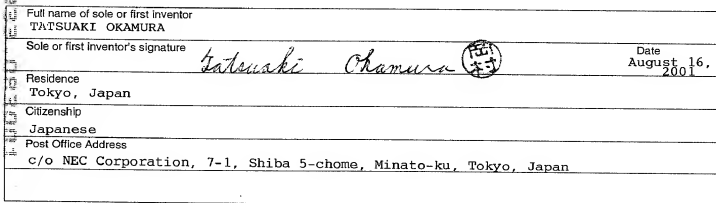 Full name of sole or first inventor
TATSUAKI OKAMURA
Sole or first inventor's signature
Tatsuaki Okamura
岡村
Date
August 16,
2001
Residence
Tokyo, Japan
Citizenship
Japanese
Post Office Address
c/o NEC Corporation, 7-1, Shiba 5-chome, Minato-ku, Tokyo, Japan